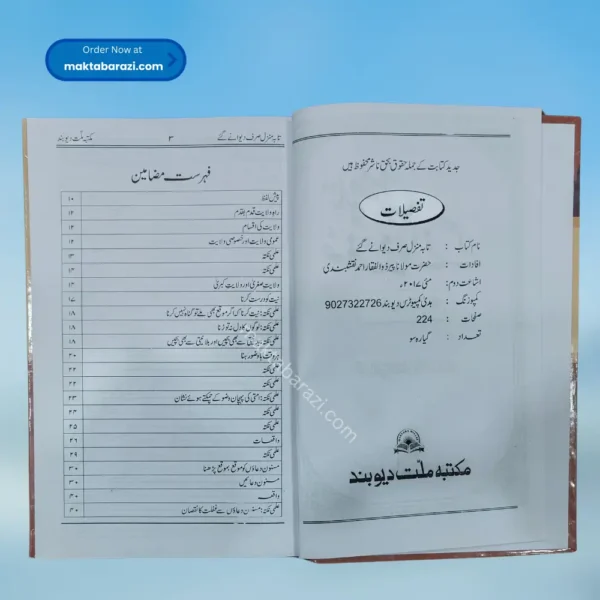 Order Now at
maktabarazi.com
جدید کتابت کے جملہ حقوق بحق ناشر محفوظ ہیں
تفصیلات
نام کتاب : تابہ منزل صرف دیوانے گئے
افادات : حضرت مولانا پیر ذوالفقار احمد نقشبندی
اشاعت دوم : مئی ۲۰۱۷ء
کمپوزنگ : ہدی کمپیوٹرس دیوبند 9027322726
صفحات : 224
تعداد : گیارہ سو
مکتبہ ملّت دیوبند
تابہ منزل صرف دیوانے گئے ۳ مکتبہ ملت دیوبند
فہرست مضامین
پیش لفظ ۱۰
راہ ولایت قدم بقدم ۱۲
ولایت کی اقسام ۱۲
عمومی ولایت اور خصوصی ولایت ۱۲
علمی نکتہ ۱۳
علمی نکتہ ۱۳
ولایت صغریٰ اور ولایت کبریٰ ۱۴
نیت کو درست کرنا ۱۷
علمی نکتہ: نیت کرنا کہ اگر موقع بھی ملے تو گناہ نہیں کرنا ۱۸
علمی نکتہ: لوگوں کا دل نہ توڑنا ۱۸
علمی نکتہ: بدنیتی سے بھی بچیں اور بلا نیتی سے بھی بچیں ۱۸
ہر وقت باوضو رہنا ۲۰
علمی نکتہ ۲۲
علمی نکتہ ۲۲
علمی نکتہ: امتی کی پہچان وضو کے چمکتے ہوئے نشان ۲۳
علمی نکتہ ۲۴
علمی نکتہ ۲۵
واقعات ۲۶
علمی نکتہ ۲۹
مسنون دعاؤں کو موقع بموقع پڑھنا ۳۰
مسنون دعائیں ۳۰
واقعہ ۳۰
علمی نکتہ: مسنون دعاؤں سے غفلت کا نقصان ۳۰
maktabarazi.com